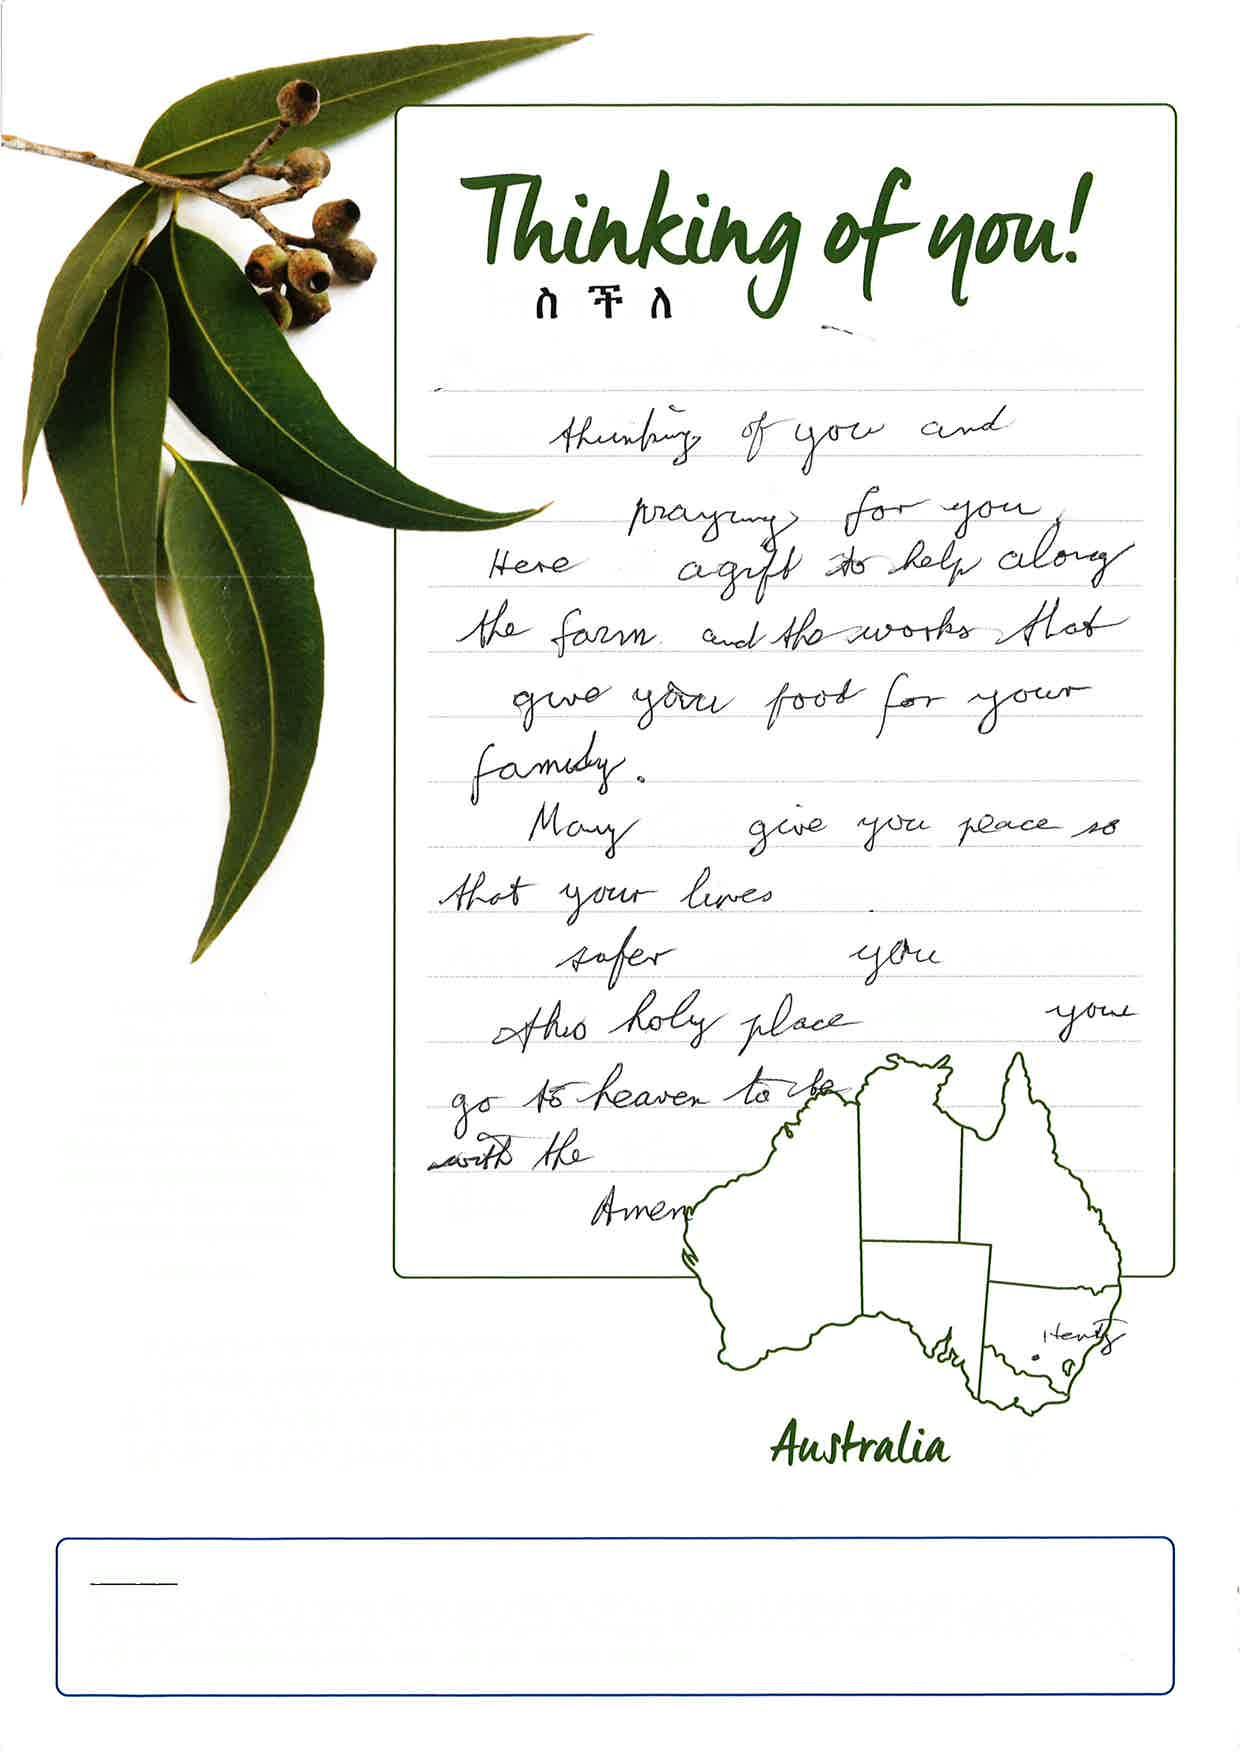 Thinking of you!
ስ ች ለ
thinking of you and
praying for you,
Here a gift to help along
the farm and the works that
give you food for your
family.
May give you peace so
that your lives
safer you
this holy place your
go to heaven to be
with the
Amen
Henty
Australia